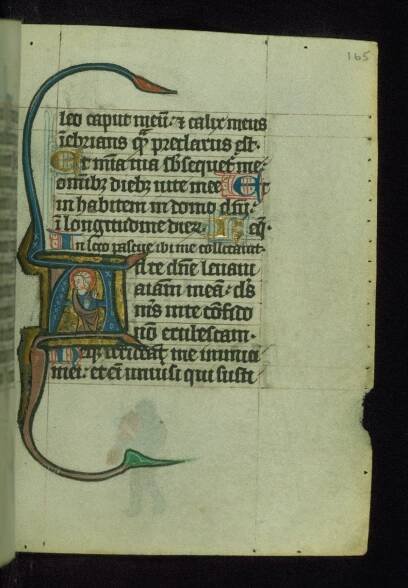 165
leo caput meū· ⁊ calix meus
īebrians qͣ preclarus est·
Et mīa tua sbsequet me·
omnibꝫ diebꝫ uite mee· Et
in habitem in domo dn̄i·
ī longitudine dier·
In loco pascue ibi me collocauit·
Ad te dn̄e leuaui
aīam meā· ds̄
ms̄ in te cōfido
nō erubescam·
Neqꝫ irrideāt me inimici
mei· et eī uniuīsi qui susti